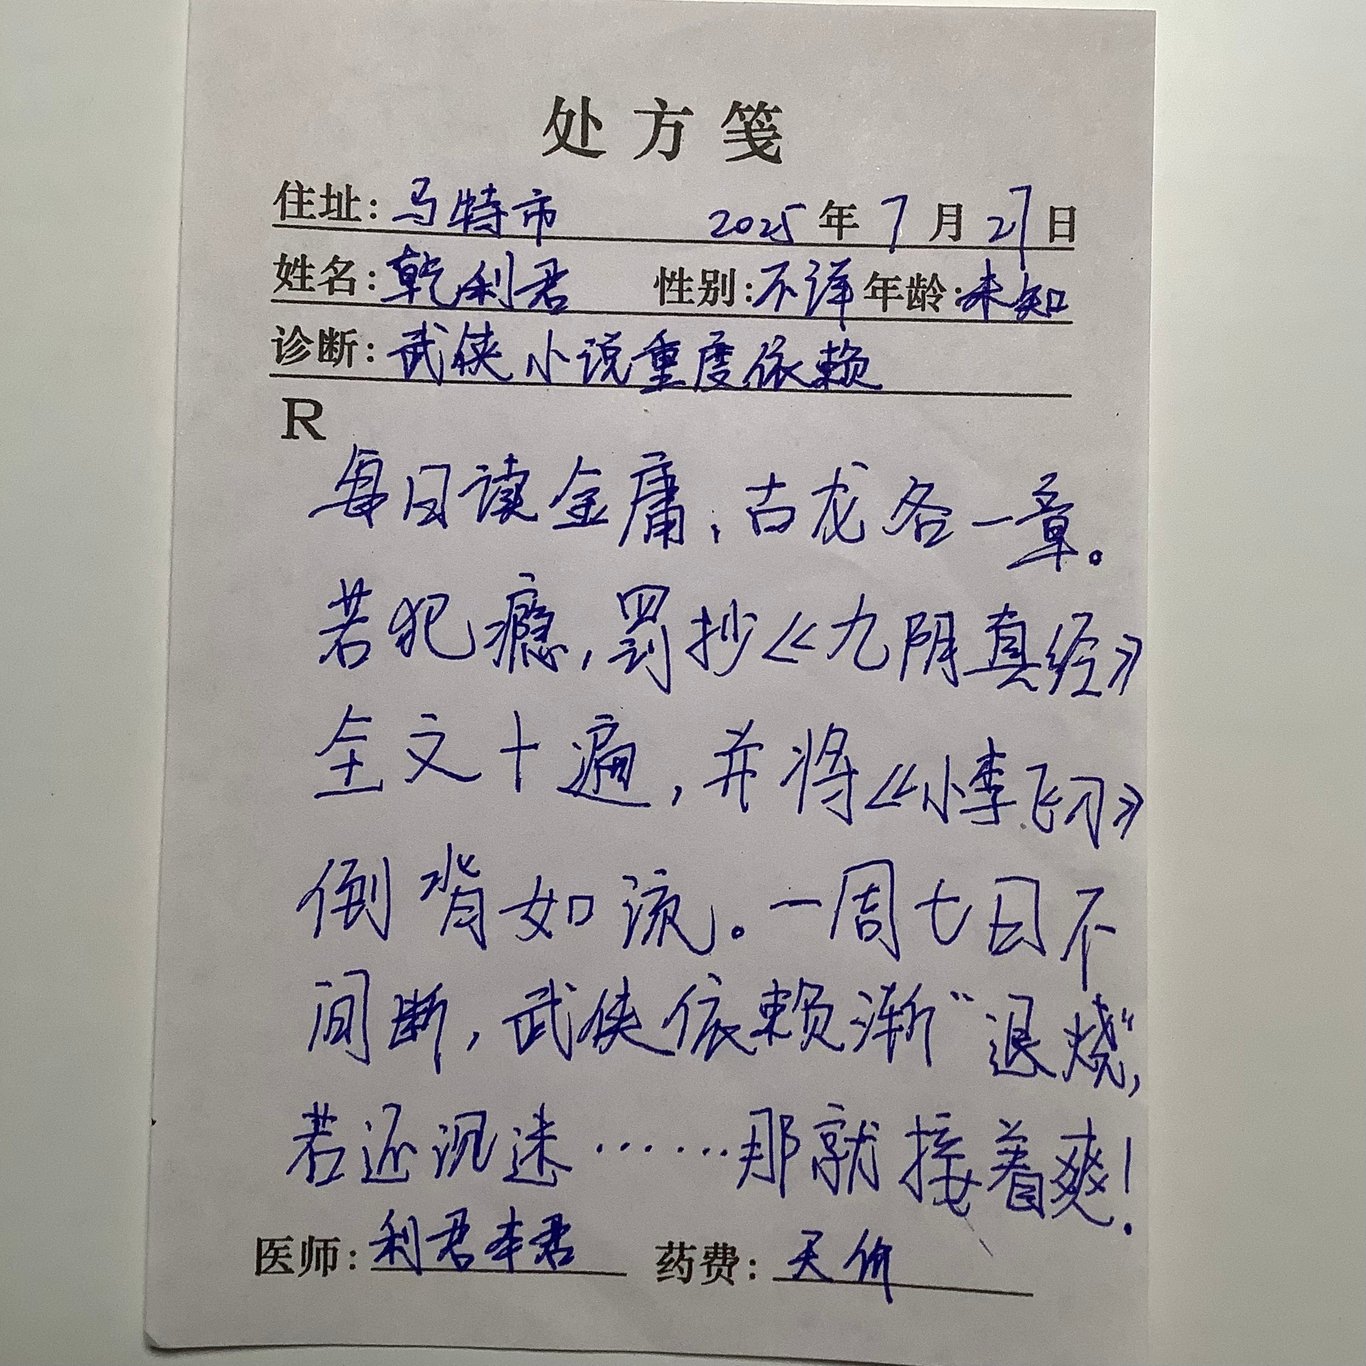 处方笺
住址：马特市 2025年7月27日
姓名：乾利君 性别：不详 年龄：未知
诊断：武侠小说重度依赖
R
每日读金庸，古龙各一章。
若犯瘾，罚抄《九阴真经》
全文十遍，并将《小李飞刀》
倒背如流。一周七日不
间断，武侠依赖渐“退烧”，
若还沉迷……那就接着爽！
医师：利君本君 药费：天价